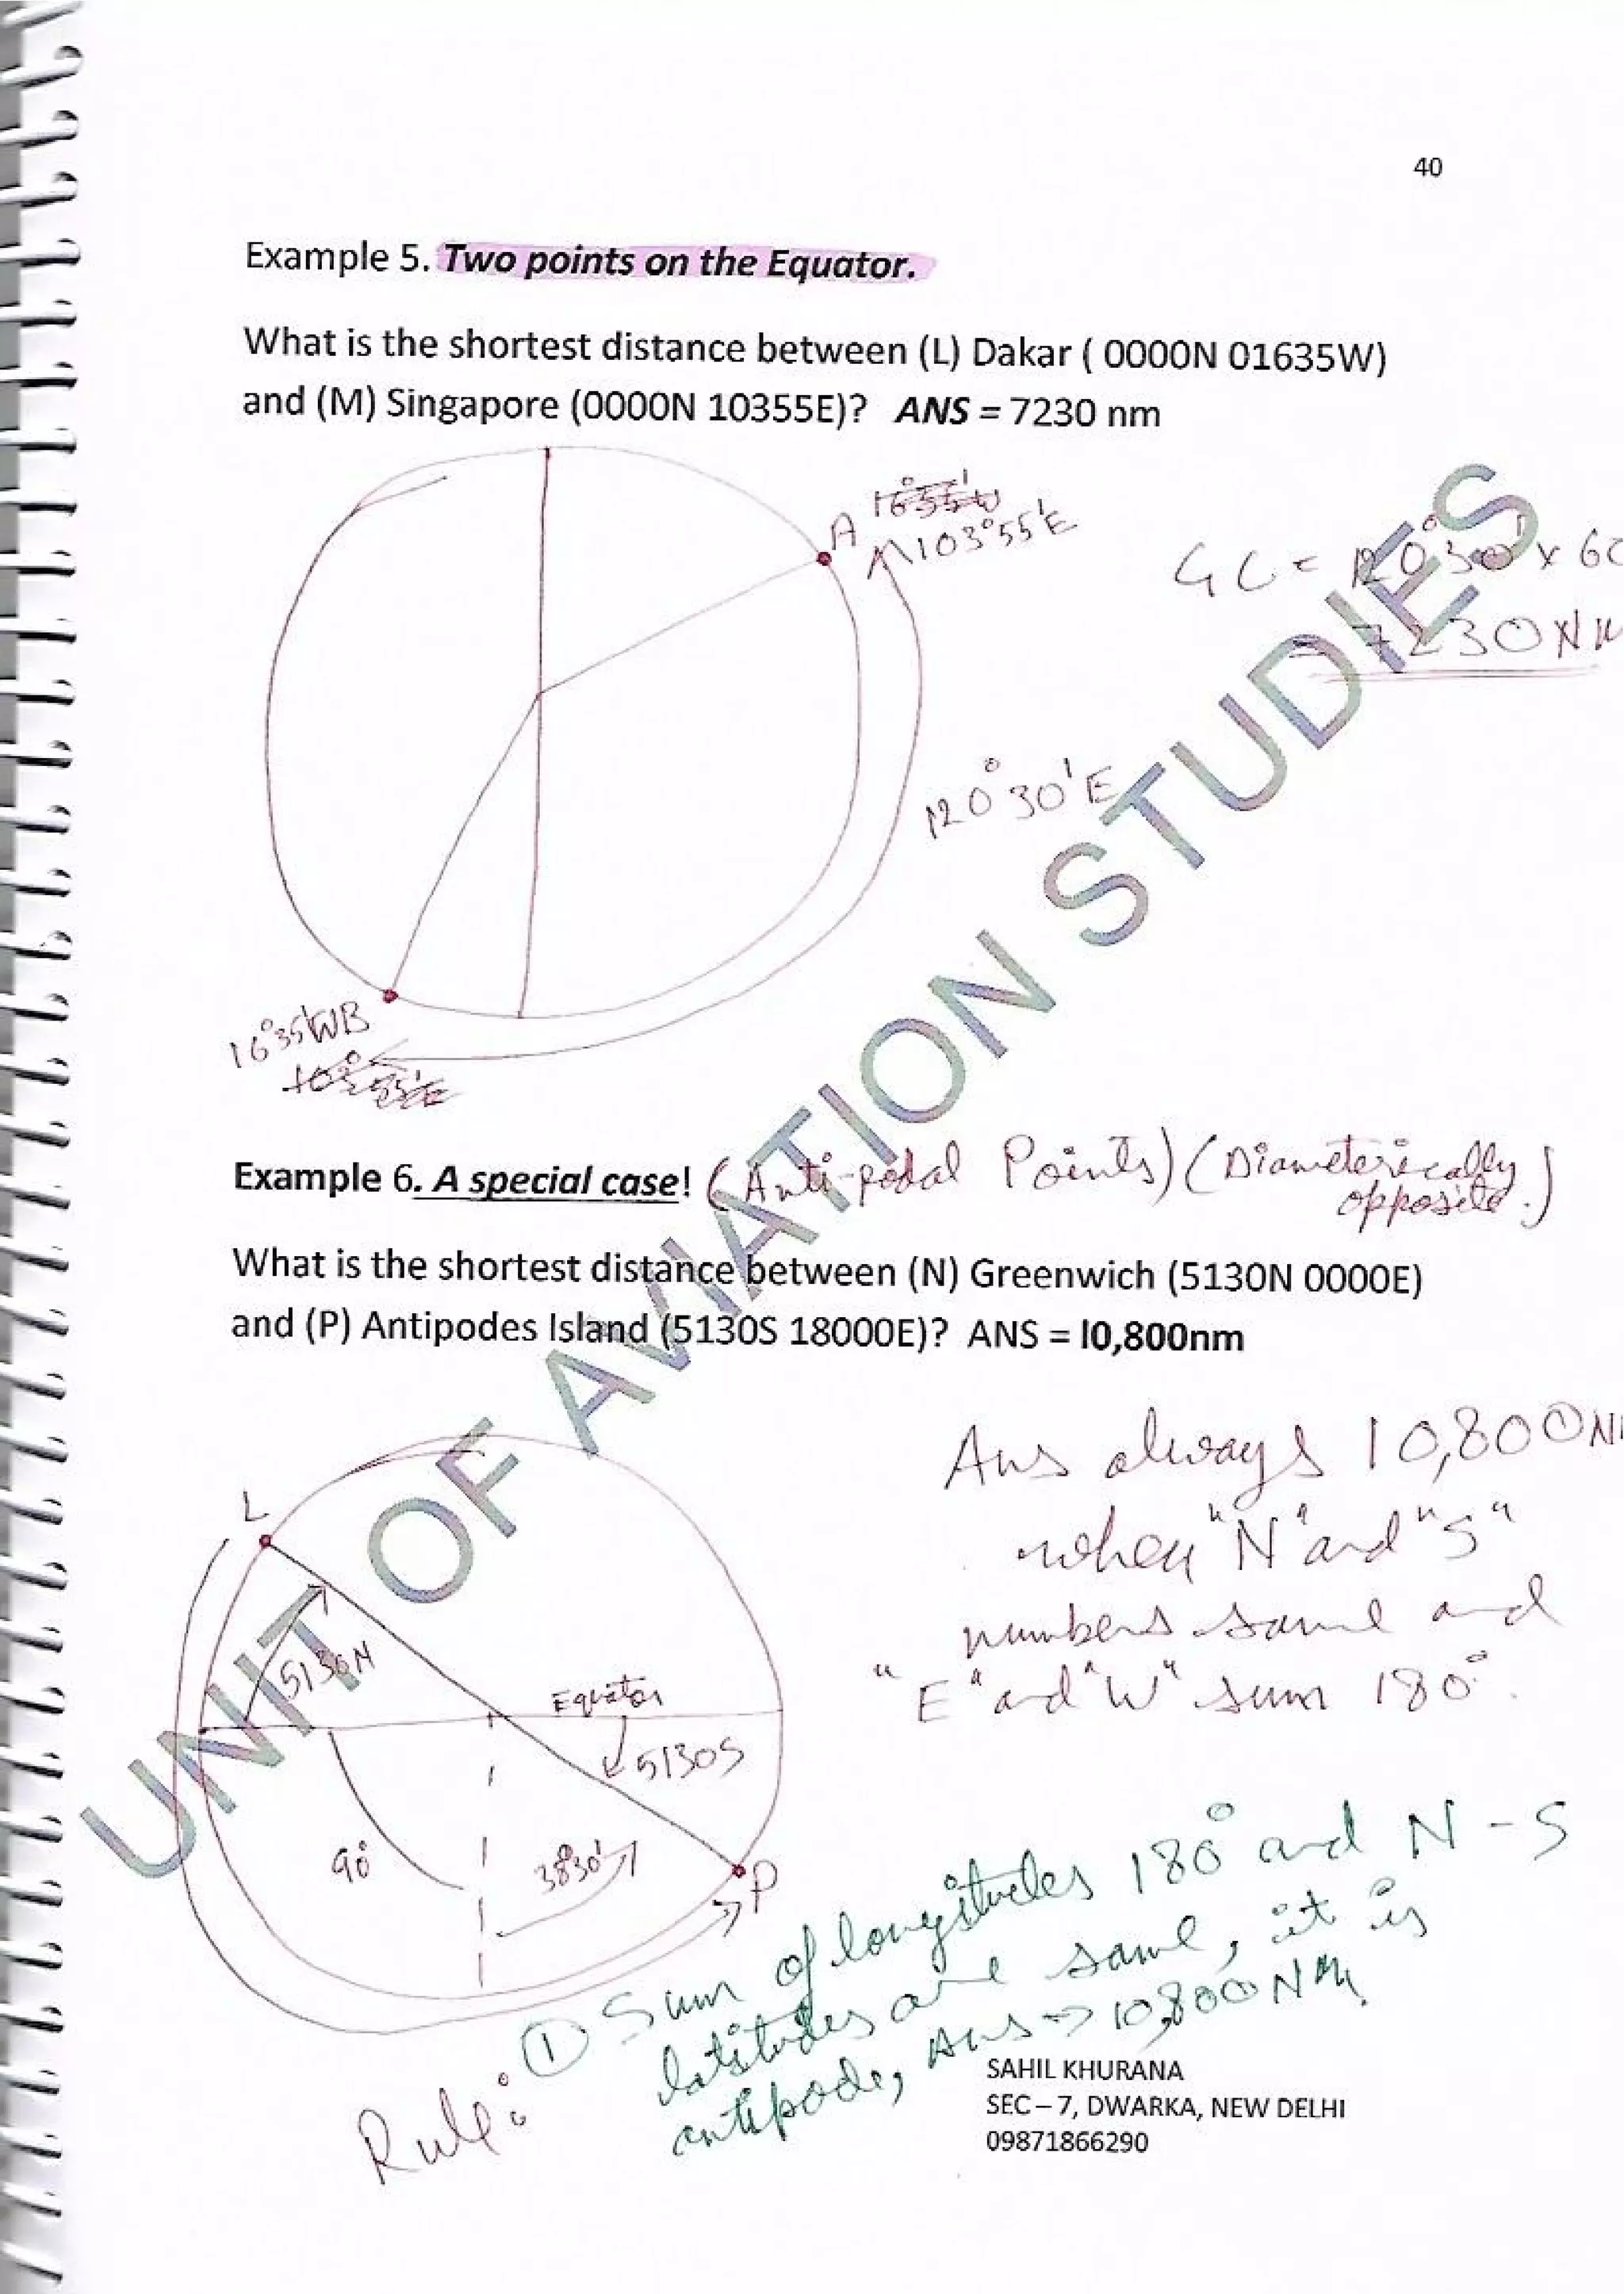 40
Example 5. Two points on the Equator.
What is the shortest distance between (L) Dakar ( 0000N 01635W)
and (M) Singapore (0000N 10355E)? ANS = 7230 nm
A
103°55'E
GC = 120°30' x 60
= 7230 NM
120°30'E
16°35'W B
Example 6. A special case! (Anti-podal Points) (Diameterically
opposite.)
What is the shortest distance between (N) Greenwich (5130N 0000E)
and (P) Antipodes Island (5130S 18000E)? ANS = I0,800nm
Ans always 10,800 NM
when "N" and "S"
numbers same and
"E" and "W" sum 180°.
L
5130N
Equator
5130S
90°
38°30'
P
Rule: ① Sum of longitudes 180° and N-S
latitudes are same, it is
antipode, Ans → 10,800 NM.
SAHIL KHURANA
SEC – 7, DWARKA, NEW DELHI
09871866290
UNIT OF AVIATION STUDIES